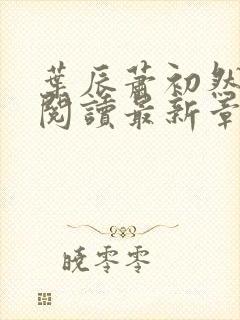 葉辰蕭初然
閱讀最新章
曉零零